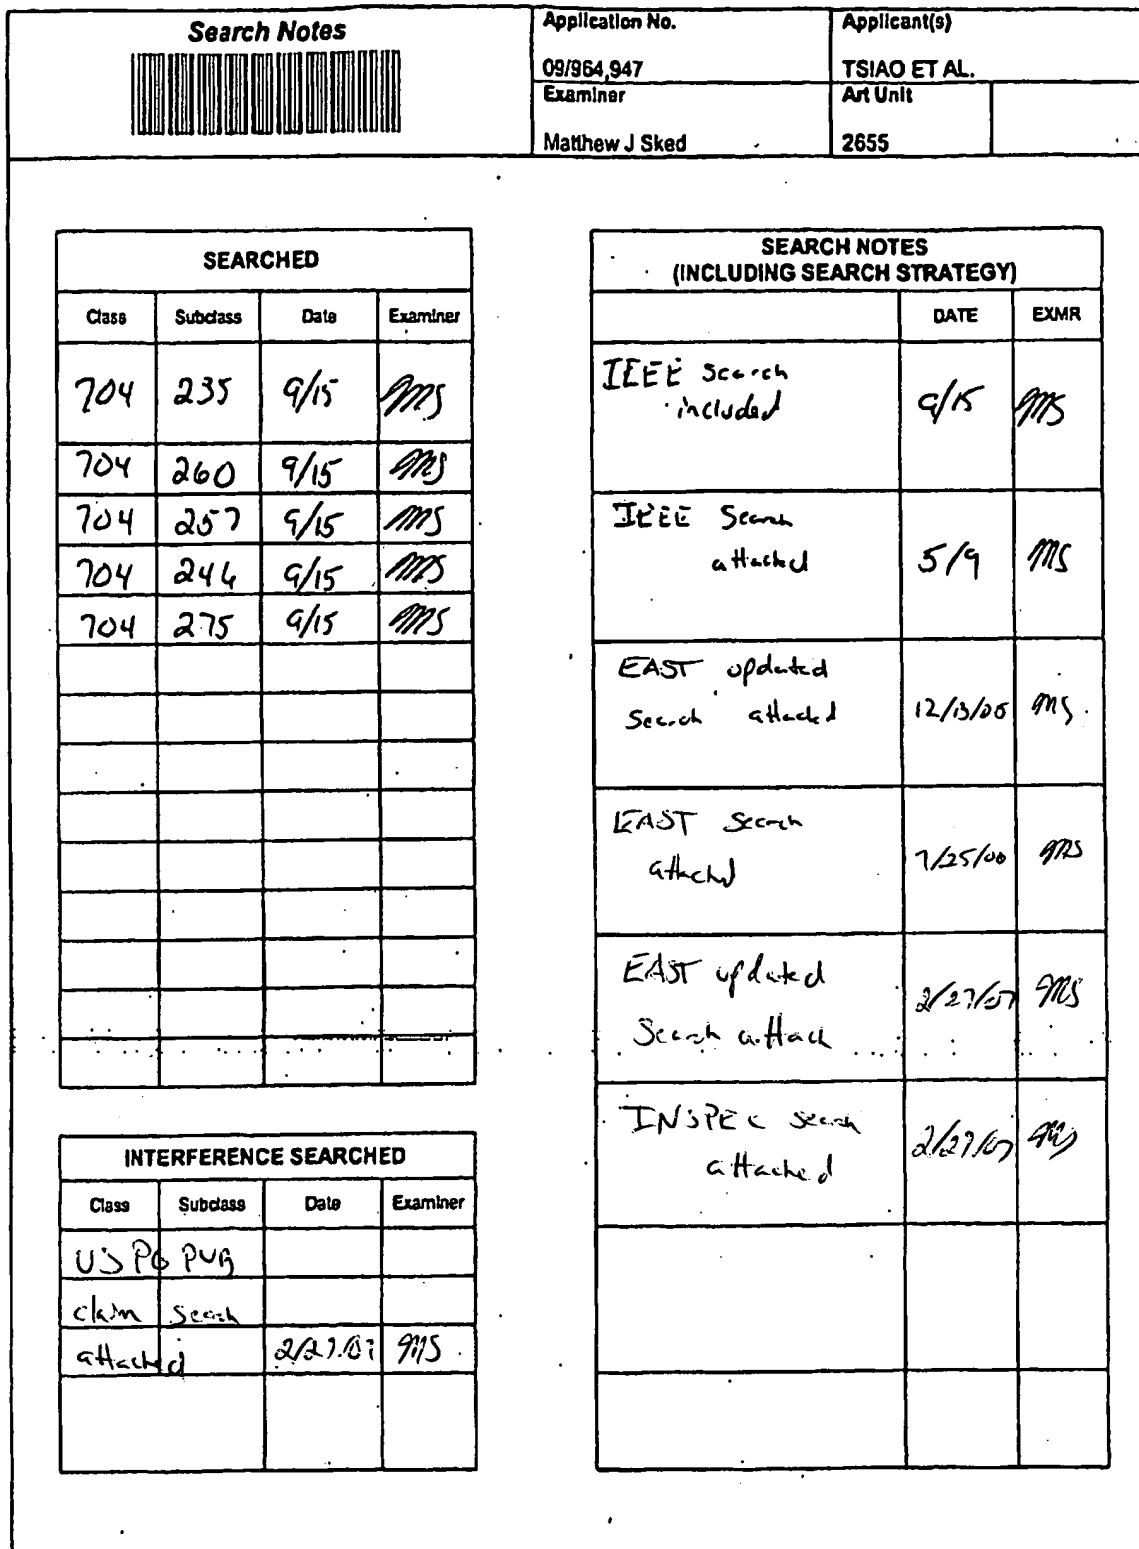 Search Notes
Application No.
Applicant(s)
09/964,947
TSIAO ET AL.
Examiner
Art Unit
Matthew J Sked
2655
SEARCHED
Class Subclass Date Examiner
704 235 9/15 MS
704 260 9/15 MS
704 257 9/15 MS
704 246 9/15 MS
704 275 9/15 MS
INTERFERENCE SEARCHED
Class Subclass Date Examiner
US PG PUB
claim search
attached 2/27/07 MS
SEARCH NOTES
(INCLUDING SEARCH STRATEGY)
DATE EXMR
IEEE search
included 9/15 MS
IEEE Search
attached 5/9 MS
EAST updated
search attached 12/13/05 MS
EAST search
attached 7/25/06 MS
EAST updated
Search attach 2/27/07 MS
INSPEC search
attached 2/27/07 MS